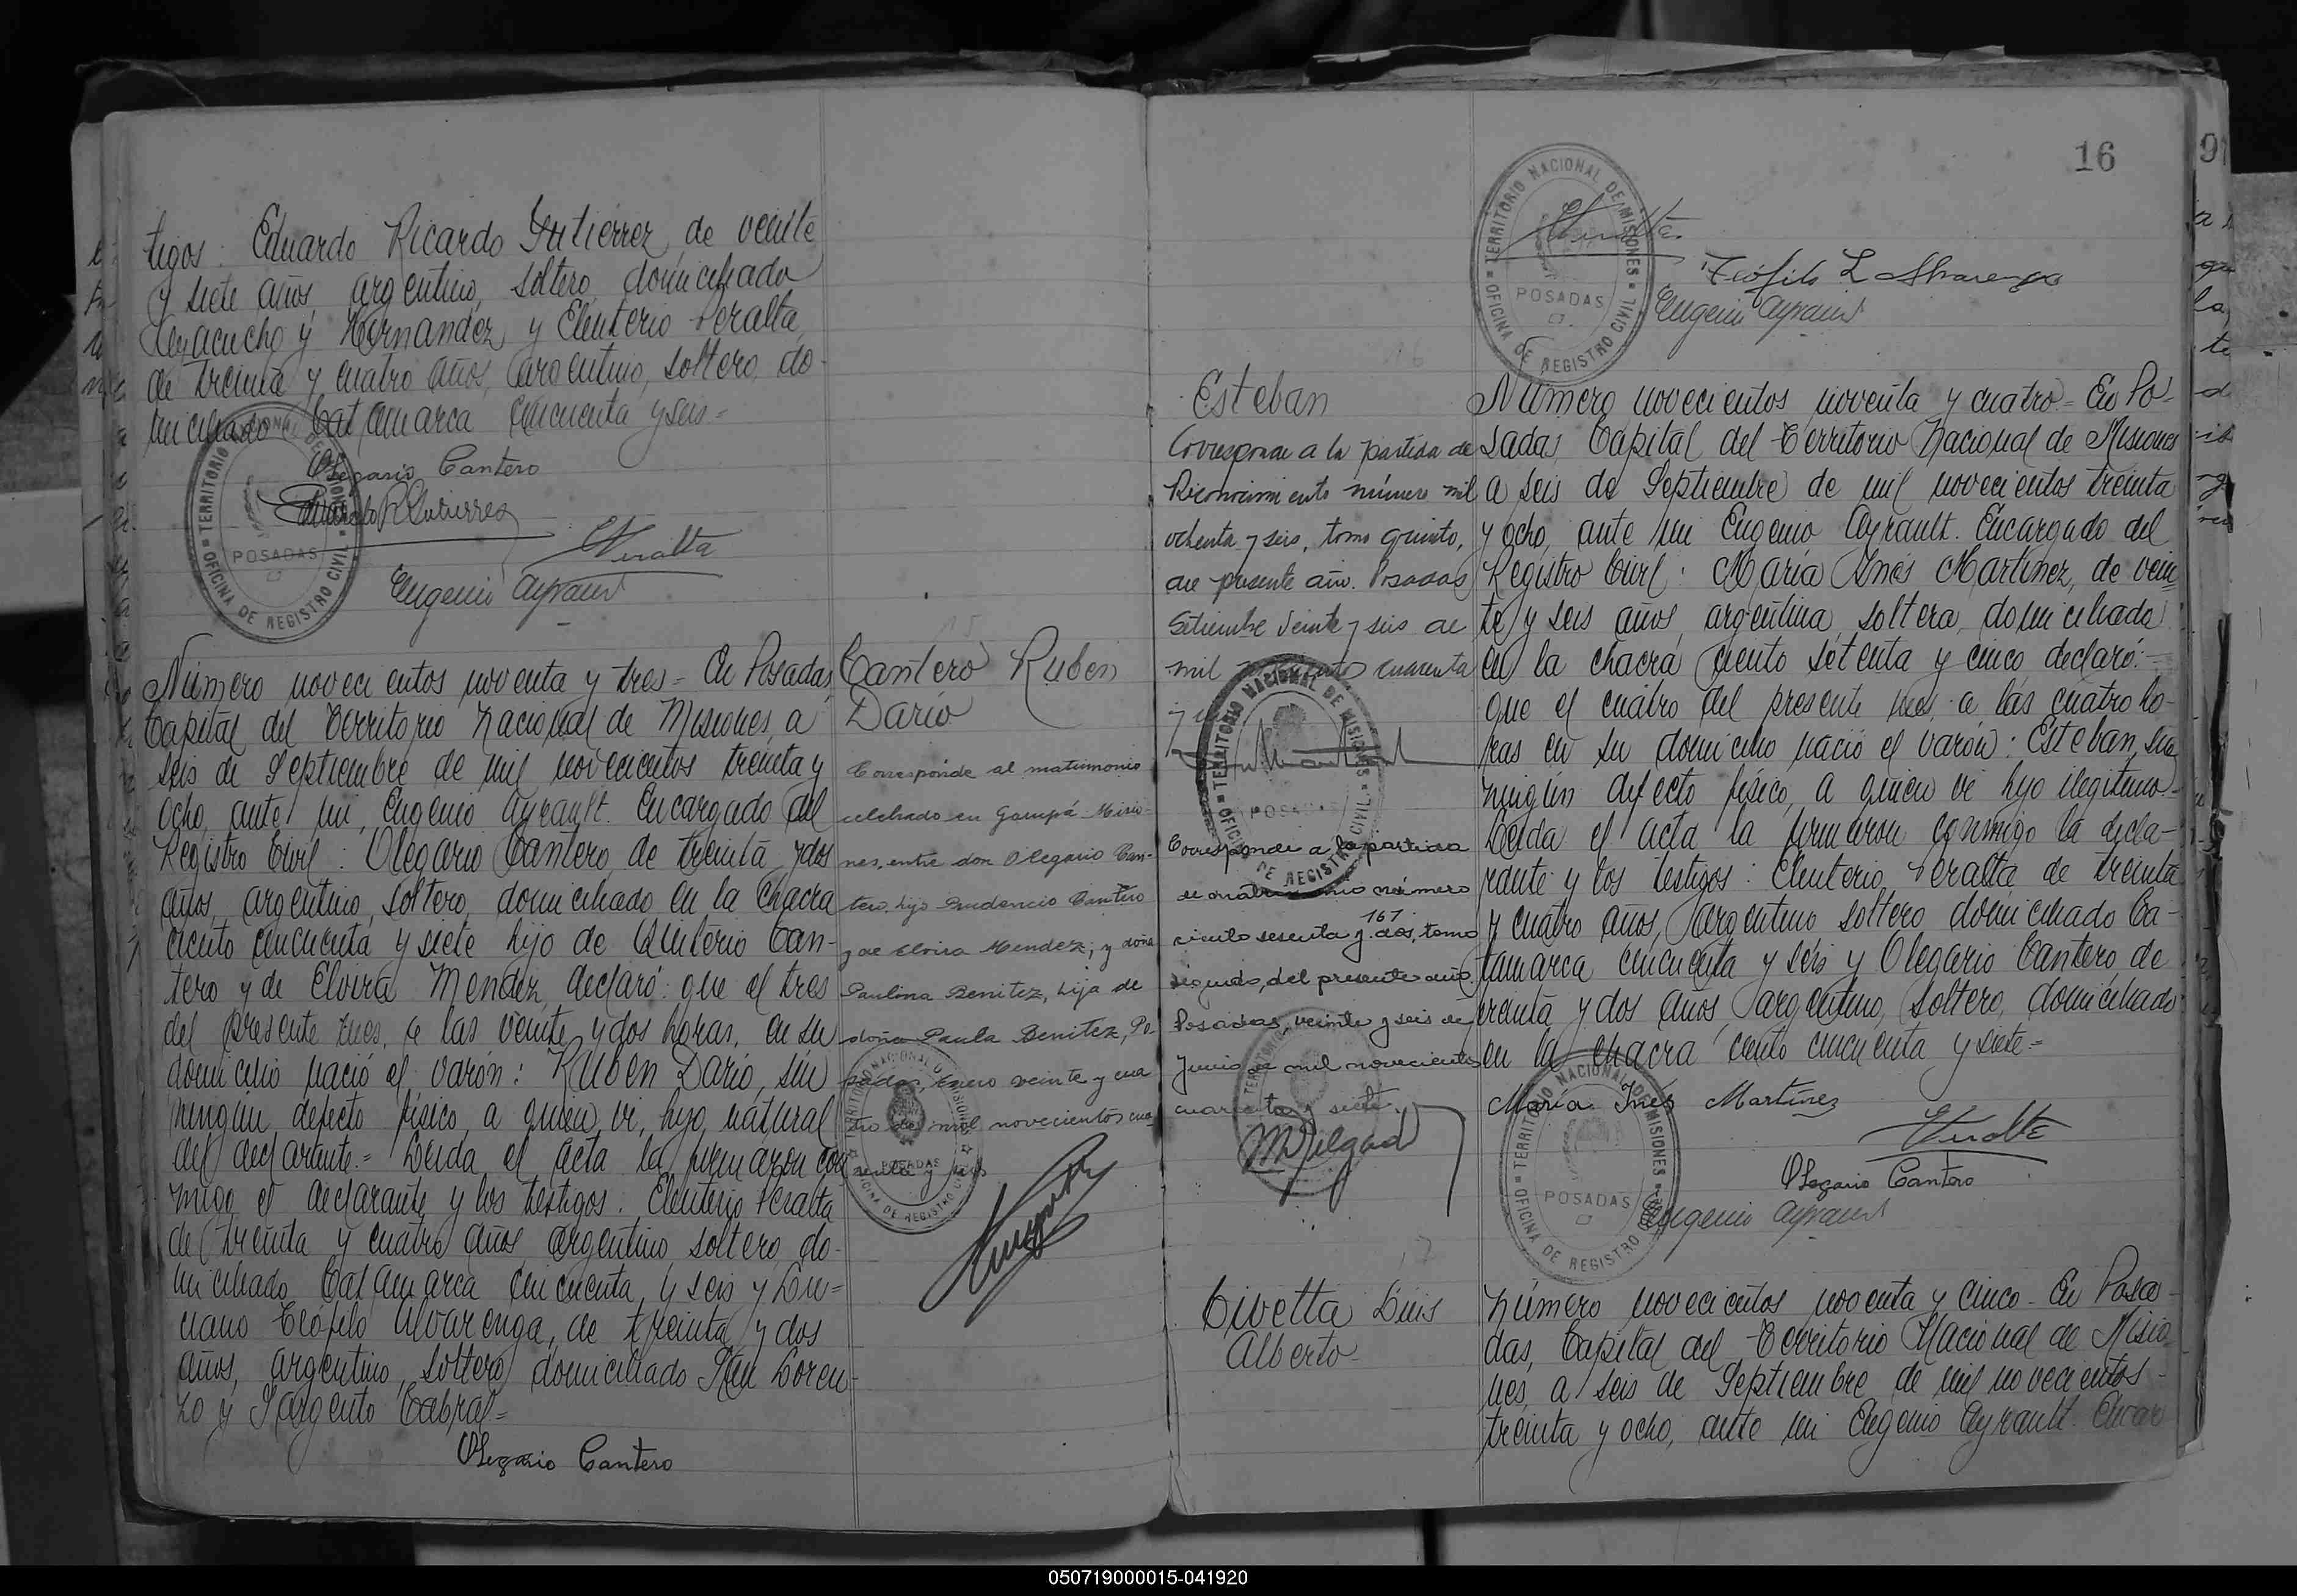 tigos: Eduardo Ricardo Gutierrez, de veinte
y siete años, argentino, soltero, domiciliado
Ayacucho y Hernandez y Eleuterio Peralta,
de treinta y cuatro años, argentino, soltero, do-
miciliado Catamarca cincuenta y seis=
TERRITORIO NACIONAL DE MISIONES
POSADAS
OFICINA DE REGISTRO CIVIL
Olegario Cantero
Eduardo R Gutierrez
EPeralta
Eugenio Ayrault
Número novecientos noventa y tres= En Posadas,
Capital del Territorio Nacional de Misiones, a
seis de Septiembre de mil novecientos treinta y
ocho, ante mi, Eugenio Ayrault. Encargado del
Registro Civil: Olegario Cantero, de treinta y dos
años, argentino, soltero, domiciliado en la chacra
ciento cincuenta y siete hijo de Can-
tero y de Elvira Mendez, declaró: que el tres
del presente mes, a las veinte y dos horas, en su
domicilio nació el varón: Ruben Dario, sin
ningún defecto físico, a quien vi, hijo natural
del declarante.= Leida el acta la firmaron con
migo el declarante y los testigos. Eleuterio Peralta
de treinta y cuatro años argentino, soltero, do-
miciliado Catamarca cincuenta y seis y Lu=
ciano Teófilo Alvarenga, de treinta y dos
años, argentino, soltero domiciliado San Loren-
zo y Sargento Cabral=
Olegario Cantero
Cantero Ruben
Dario
Corresponde al matrimonio
celebrado en Garupá Misio-
nes, entre don Olegario Can-
tero, hijo Prudencio Cantero
y de Elvira Mendez; y doña
Paulina Benitez, hija de
doña Paula Benitez, Po-
sadas, Enero veinte y cua
tro de mil novecientos cua-
renta y
TERRITORIO NACIONAL DE MISIONES
POSADAS
OFICINA DE REGISTRO CIVIL
16
TERRITORIO NACIONAL DE MISIONES
POSADAS
OFICINA DE REGISTRO CIVIL
EPeralta
Teófilo L Alvarenga
Eugenio Ayrault
Esteban
Corresponde a la partida de
Reconocimiento número mil
ochenta y seis, tomo quinto,
del presente año. Posadas
Setiembre veinte y seis de
mil cuarenta
y
TERRITORIO NACIONAL DE MISIONES
POSADAS
OFICINA DE REGISTRO CIVIL
Corresponde a la partida
de matrimonio número
167
ciento sesenta y dos, tomo
segundo, del presente año.
Posadas, veinte y seis de
Junio de mil novecientos
cuarenta y siete.
MDelgado
Número novecientos noventa y cuatro= En Po-
sadas Capital del Territorio Nacional de Misiones
a seis de Septiembre de mil novecientos treinta
y ocho, ante mi Eugenio Ayrault. Encargado del
Registro Civil: María Inés Martinez, de vein
te y seis años, argentina, soltera, domiciliada
en la chacra ciento setenta y cinco declaró:
que el cuatro del presente mes, a las cuatro ho-
ras en su domicilio nació el varón: Esteban, sin
ningún defecto físico, a quien vi hijo ilegitimo=
Leida el acta la firmaron conmigo la decla-
rante y los testigos: Eleuterio Peralta de treinta
y cuatro años, argentino soltero domiciliado Ca-
tamarca cincuenta y séis y Olegario Cantero, de
treinta y dos años, argentino, soltero, domiciliado
en la chacra ciento cincuenta y siete=
María Inés Martinez
EPeralta
Olegario Cantero
Eugenio Ayrault
TERRITORIO NACIONAL DE MISIONES
POSADAS
OFICINA DE REGISTRO CIVIL
17
Civetta Luis
Alberto-
Número novecientos noventa y cinco- En Posa-
das, Capital del Territorio Nacional de Misio
nes, a seis de Septiembre de mil novecientos
treinta y ocho, ante mi Eugenio Ayrault. Encar
050719000015-041920